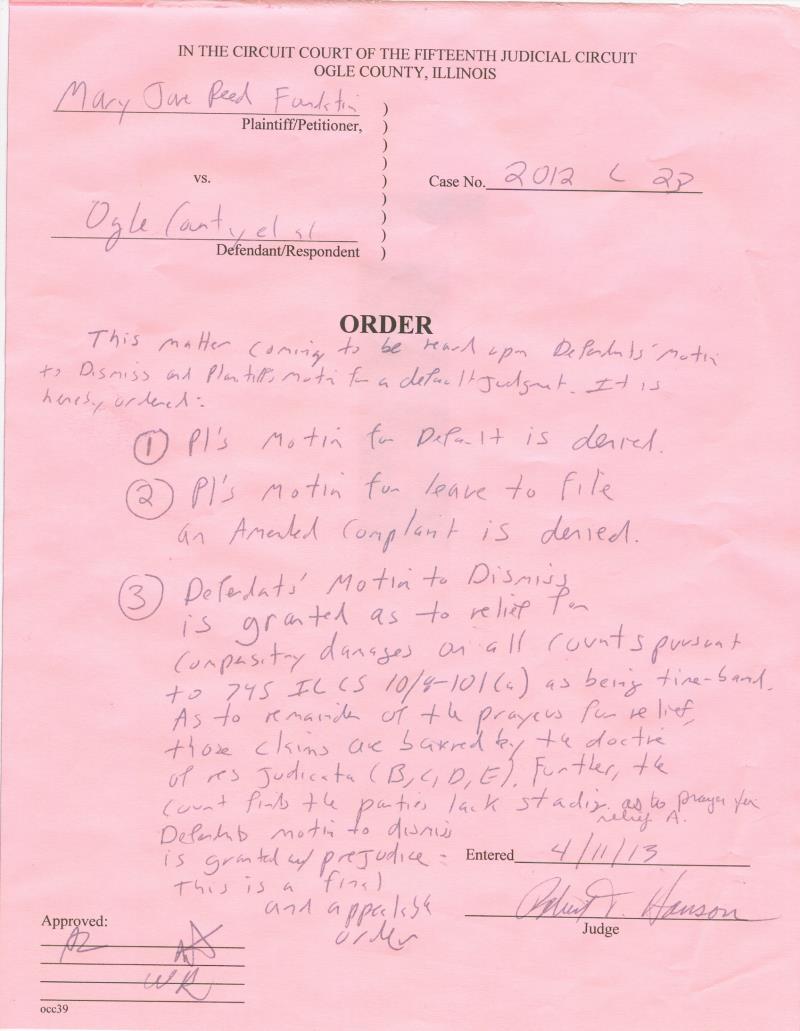 IN THE CIRCUIT COURT OF THE FIFTEENTH JUDICIAL CIRCUIT
OGLE COUNTY, ILLINOIS
Mary Jane Reed Foundation
Plaintiff/Petitioner,
vs.
Case No. 2012 L 28
Ogle County, et al
Defendant/Respondent
ORDER
This matter coming to be heard upon Defendants' Motion
to Dismiss and Plaintiff's motion for a default judgment. It is
hereby ordered:
① Pl's Motion for Default is denied.
② Pl's Motion for leave to file
an Amended Complaint is denied.
③ Defendants' Motion to Dismiss
is granted as to relief for
compensatory damages on all counts pursuant
to 745 ILCS 10/8-101(a) as being time-barred.
As to remainder of the prayers for relief,
those claims are barred by the doctrine
of res judicata (B, C, D, E). Further, the
court finds the parties lack standing as to prayer for
relief A.
Defendants motion to dismiss
is granted w/ prejudice.
This is a final
and appealable
order
Entered 4/11/13
Robert T. Hanson
Judge
Approved:
WR
occ39